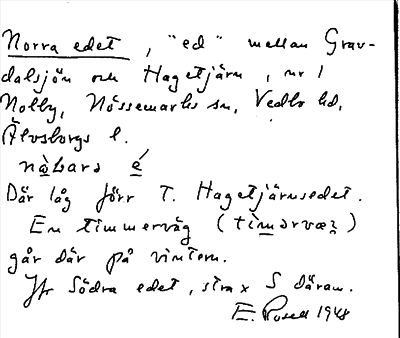 Norra edet, "ed" mellan Grav-
dalsjön och Hagetjärn, nr 1
Nolby, Nössemarks sn, Vedbo hd,
Älvsborgs l.
nò̱bara é̱
Där låg förr T. Hagetjärnsedet.
En timmerväg (timərvæ)
går där på vintern.
Jfr Södra edet, strax S däram.
E. 1948